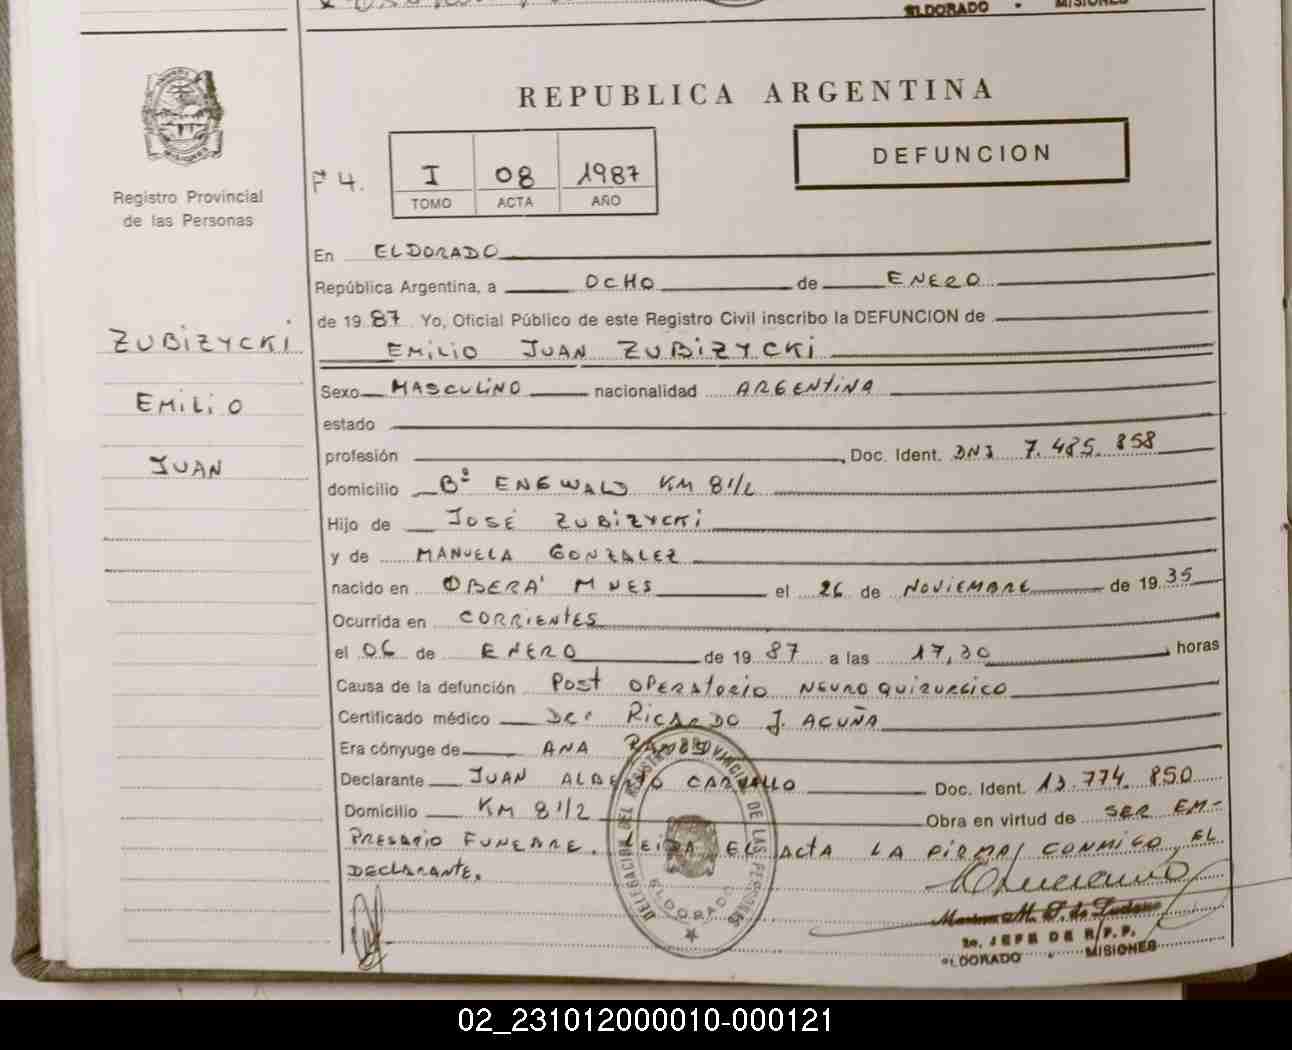 ELDORADO MISIONES
Registro Provincial
de las Personas
ZUBIZYCKI
EMILIO
JUAN
REPUBLICA ARGENTINA
Fº 4.
I 08 1987
TOMO ACTA AÑO
DEFUNCION
En ELDORADO
República Argentina, a OCHO de ENERO
de 19 87 Yo, Oficial Público de este Registro Civil inscribo la DEFUNCION de
EMILIO JUAN ZUBIZYCKI
Sexo MASCULINO nacionalidad ARGENTINA
estado
profesión Doc. Ident. DNI 7.485.858
domicilio Bº KM 8 1/2
Hijo de JOSÉ ZUBIZYCKI
y de MANUELA GONZALEZ
nacido en OBERA' MNES el 26 de NOVIEMBRE de 19 35
Ocurrida en CORRIENTES
el 06 de ENERO de 19 87 a las 17,30 horas
Causa de la defunción POST OPERATORIO NEUROQUIRURGICO
Certificado médico RICARDO J. ACUÑA
Era cónyuge de ANA
Declarante JUAN ALBERTO CARVALLO Doc. Ident. 13.774.850
Domicilio KM 8 1/2 Obra en virtud de SER EM-
PRESARIO FUNEBRE. LEIDA EL ACTA LA FIRMA CONMIGO, EL
DECLARANTE.
DELEGACION DEL REGISTRO PROVINCIAL DE LAS PERSONAS
ELDORADO
2o. JEFE DE R/P.P.
ELDORADO - MISIONES
02_231012000010-000121